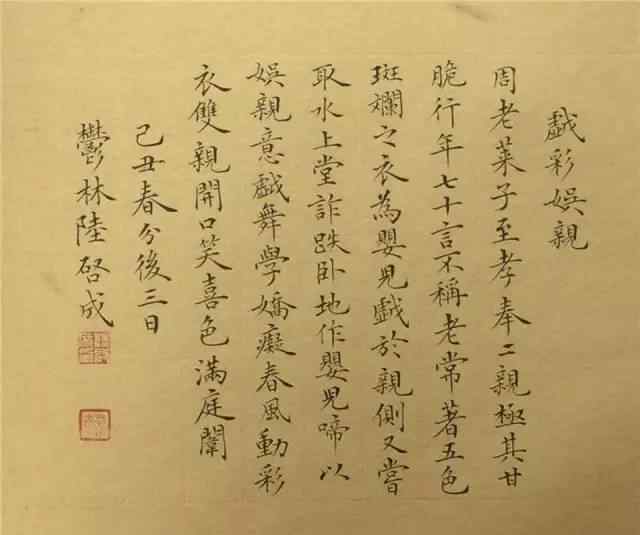 戲彩娛親
周老萊子至孝奉二親極其甘
脆行年七十言不稱老常著五色
斑斕之衣為嬰兒戲於親側又嘗
取水上堂詐跌卧地作嬰兒啼以
娛親意戲舞學嬌癡春風動彩
衣雙親開口笑喜色滿庭闈
己丑春分後三日
鬱林陸啓成